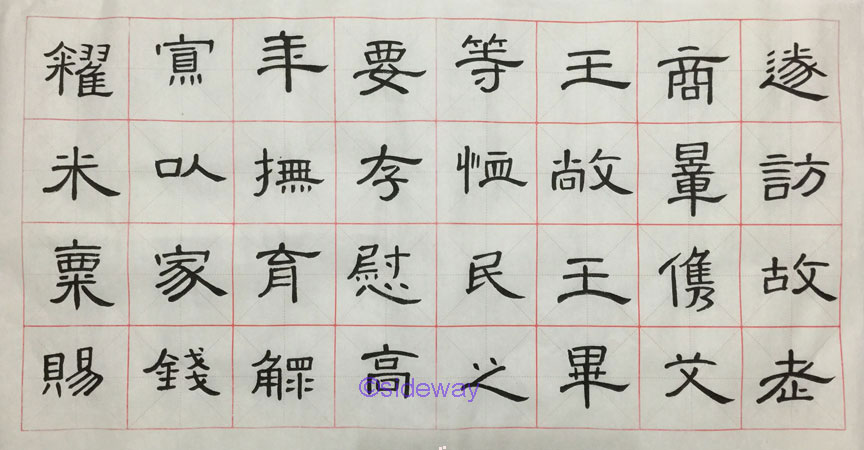 遂訪故老
商量儁艾
王敞王畢
等恤民之
要存慰高
年撫育鰥
寡以家錢
糴米粟賜
©sideway